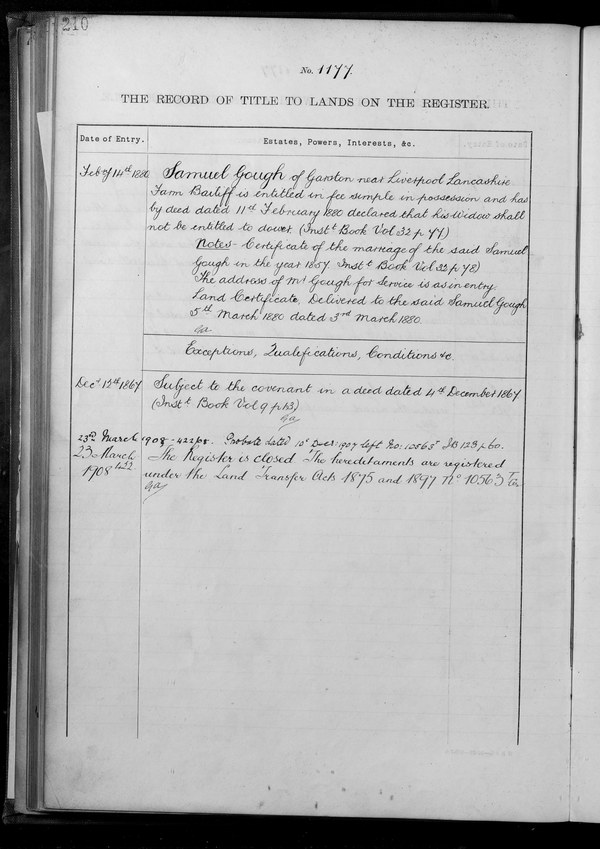 210
No. 1177.
THE RECORD OF TITLE TO LANDS ON THE REGISTER.
Date of Entry.
Estates, Powers, Interests, &c.
Feby 14th 1880
Samuel Gough of Garston near Liverpool Lancashire
Farm Bailiff is entitled in fee simple in possession and has
by deed dated 11th February 1880 declared that his Widow shall
not be entitled to dower. (Instt Book Vol 32 p 77)
Notes - Certificate of the marriage of the said Samuel
Gough in the year 1857. Instt Book Vol 32 p 78)
The address of Mr Gough for service is as in entry.
Land Certificate. Delivered to the said Samuel Gough
5th March 1880 dated 3rd March 1880.
Exceptions, Qualifications, Conditions &c.
Decr 12th 1867
Subject to the covenant in a deed dated 4th December 1867
(Instt Book Vol 9 p 13)
23rd March 1908 - 422/08. Probate dated 10 Decr 1907 left No: 10563 IB 123 p 60.
23 March
1908 422
The Register is closed. The hereditaments are registered
under the Land Transfer Acts 1875 and 1897 No 10563